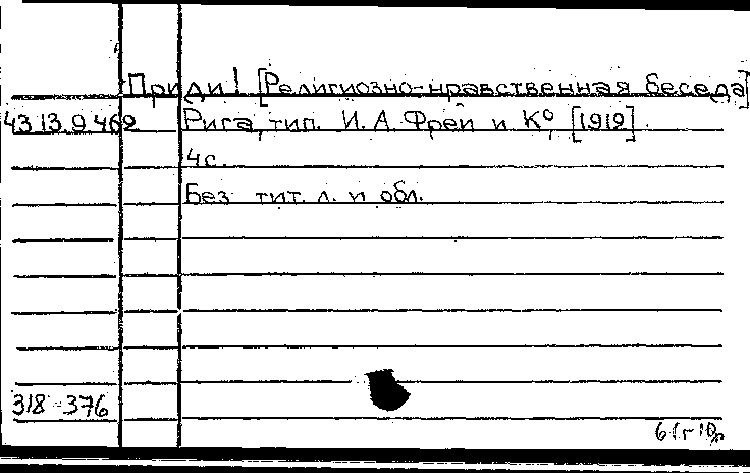 Приди! [Религиозно-нравственная беседа]
43 13.9 469 Рига, тип. И. А. Фрей и К⁰, [1912].
4с.
Без тит. л. и обл.
318-376